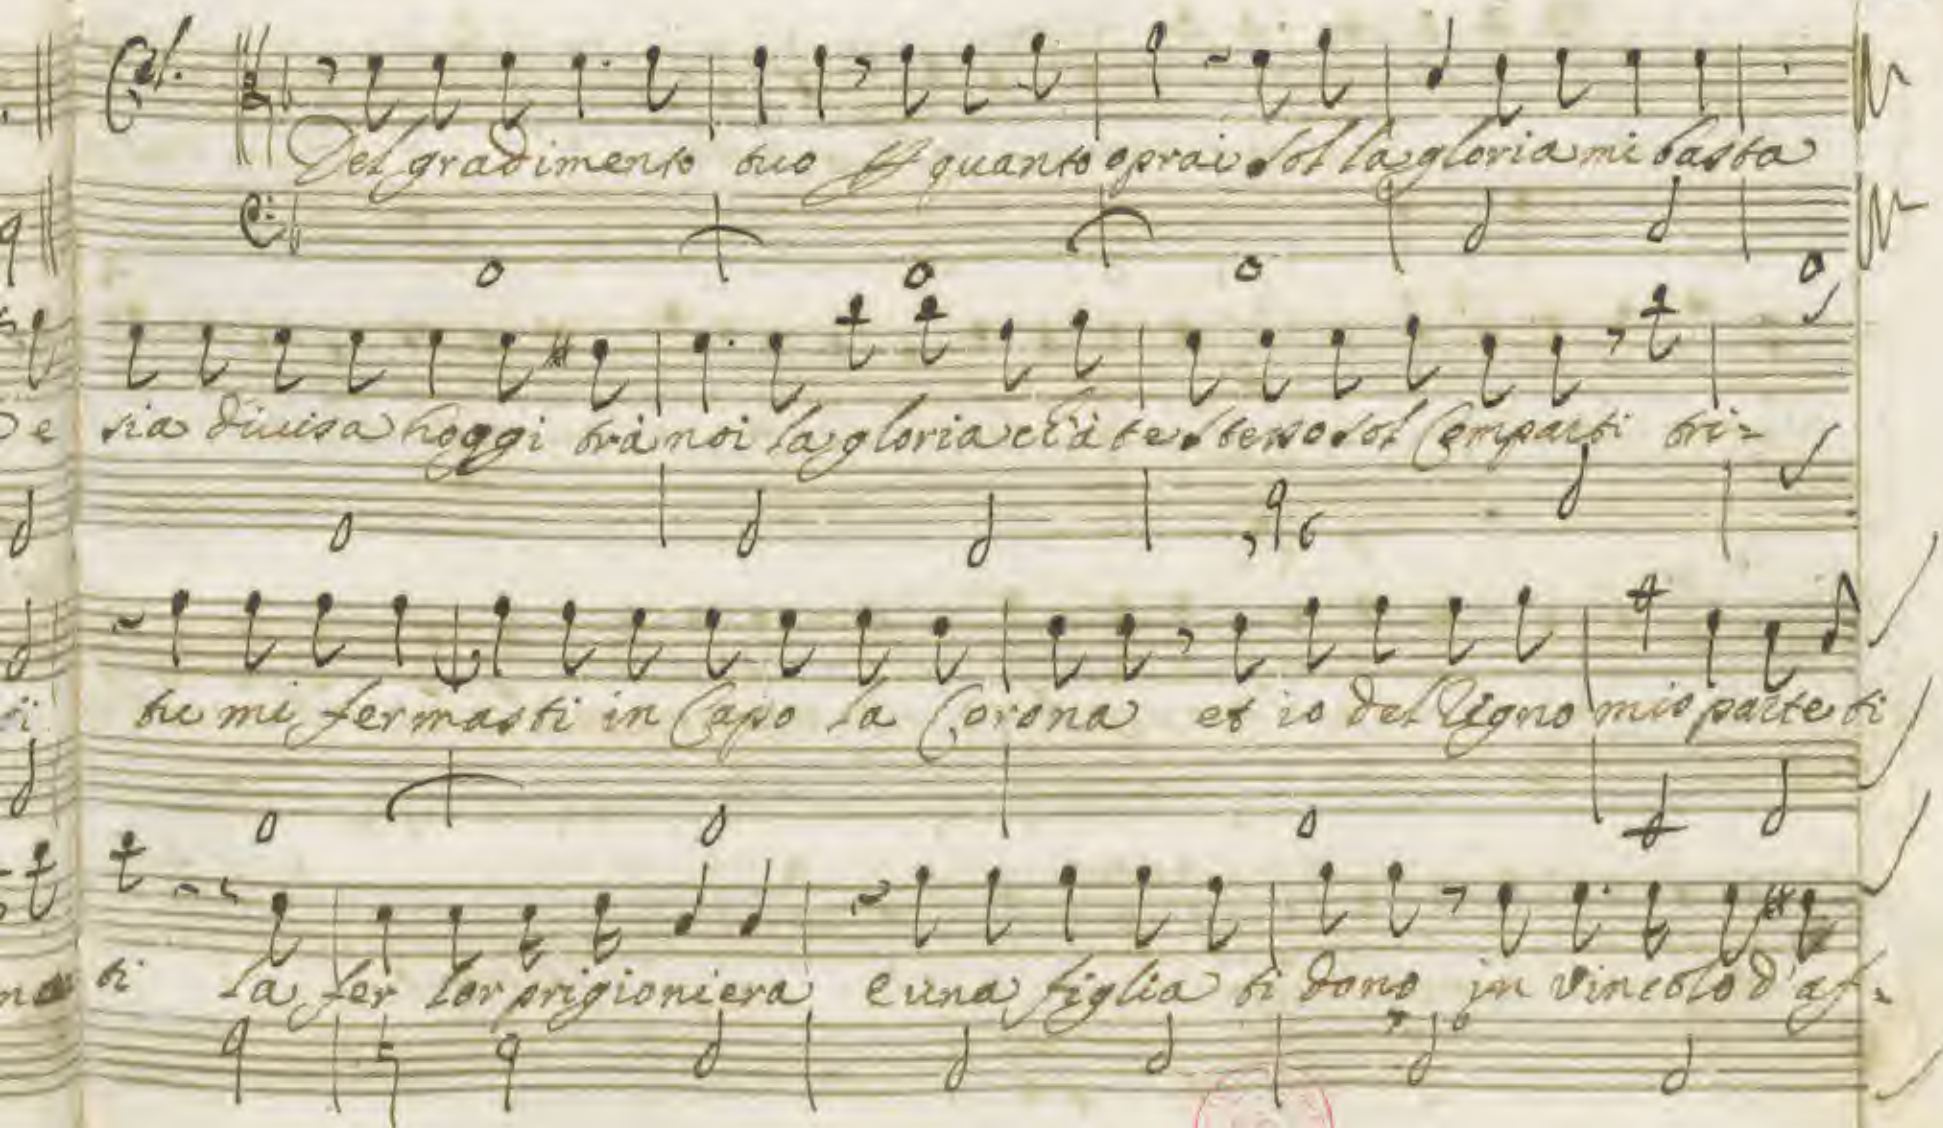 Del gradimento tuo quanto oprai sol la gloria mi basta
e sia diuisa hoggi trà noi la gloria ch'à te stesso sol Comparti tri=
tu mi fermasti in Capo la Corona et io del Regno mio parte ti
ti la fer lor prigioniera e una figlia ti dono in vincolo d'af=